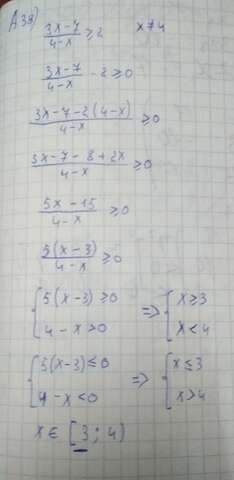 A38) (3x-7)/(4-x) ≥ 2 x≠4
(3x-7)/(4-x) - 2 ≥ 0
(3x-7-2(4-x))/(4-x) ≥ 0
(3x-7-8+2x)/(4-x) ≥ 0
(5x-15)/(4-x) ≥ 0
(5(x-3))/(4-x) ≥ 0
{ 5(x-3) ≥ 0 => { x ≥ 3
4-x > 0 x < 4
{ 5(x-3) ≤ 0 => { x ≤ 3
4-x < 0 x > 4
x ∈ [3; 4)